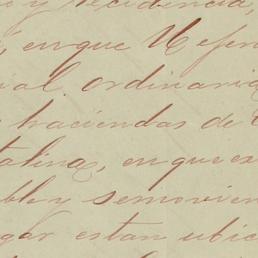 y recidencia,
, en que U ofen
ial ordinaria
haciendas de
talina, en que es
ble y semovien
gar estan ubic